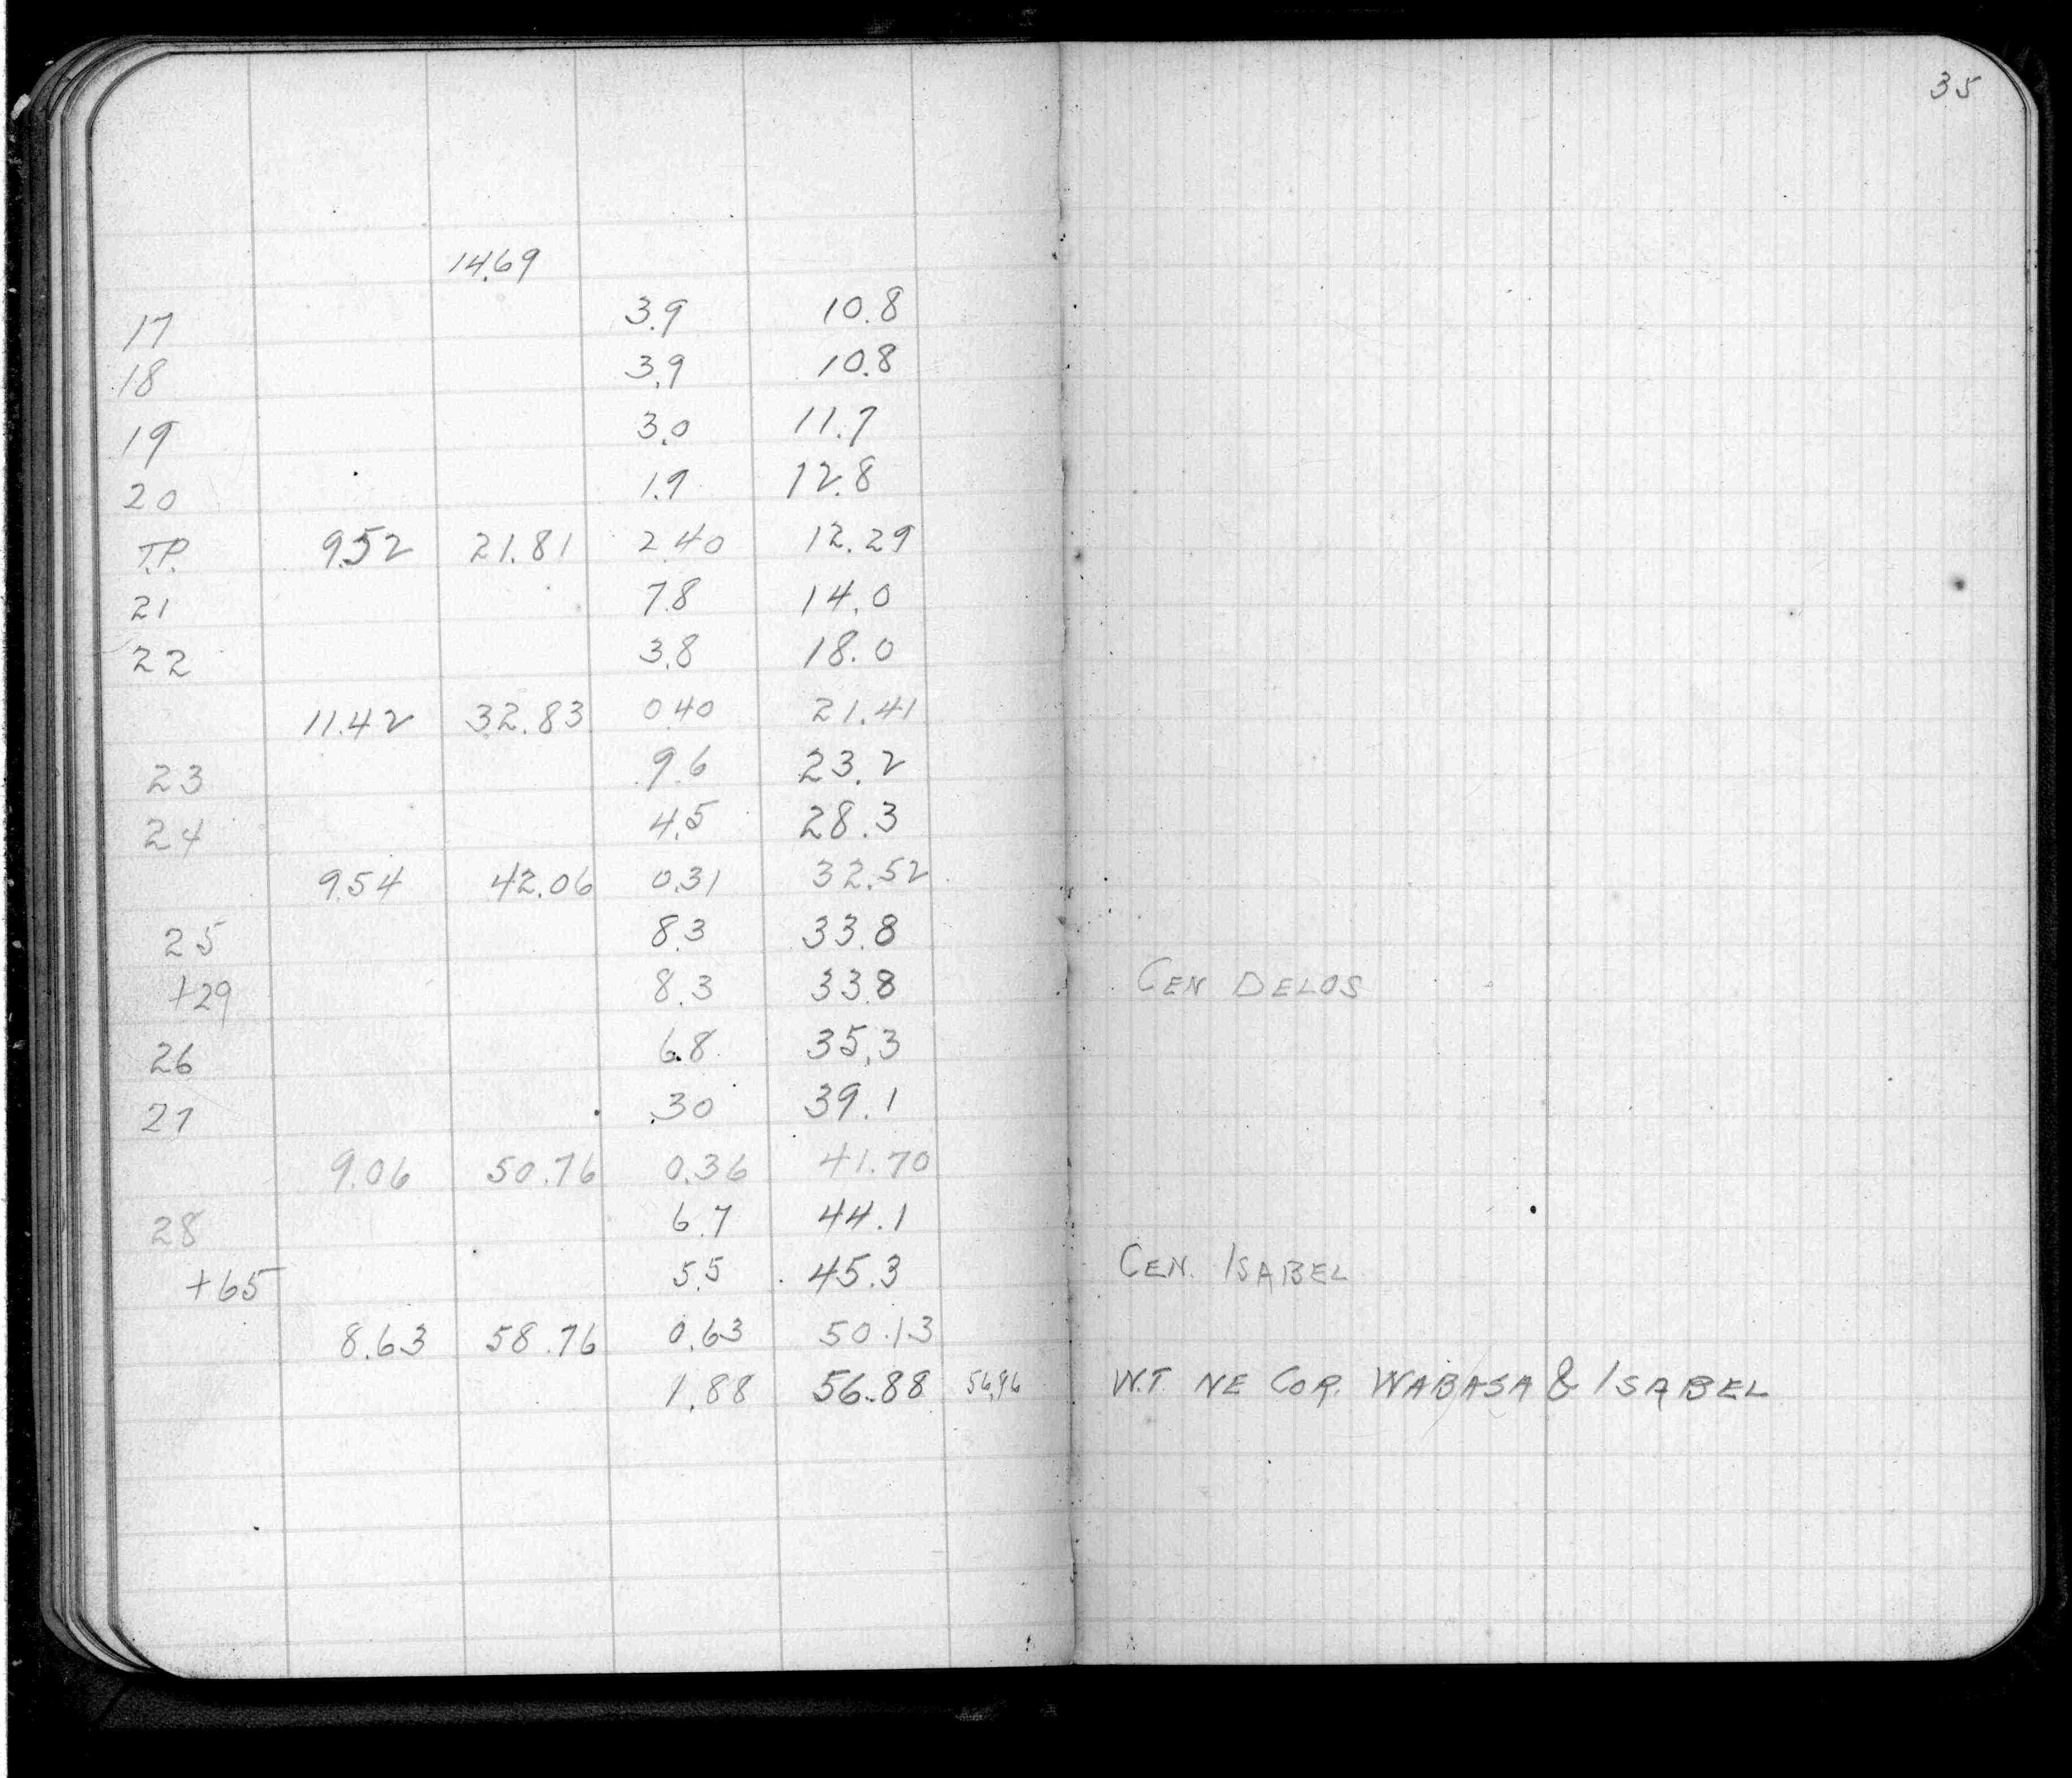 35
14.69
17 3.9 10.8
18 3.9 10.8
19 3.0 11.7
20 1.9 12.8
T.P. 9.52 21.81 2.40 12.29
21 7.8 14.0
22 3.8 18.0
11.42 32.83 0.40 21.41
23 9.6 23.2
24 4.5 28.3
9.54 42.06 0.31 32.52
25 8.3 33.8
+29 8.3 33.8 CEN DELOS
26 6.8 35.3
27 3.0 39.1
9.06 50.76 0.36 41.70
28 6.7 44.1
+65 5.5 45.3 CEN. ISABEL
8.63 58.76 0.63 50.13
1.88 56.88 56.96 W.T. NE COR. WABASA & ISABEL